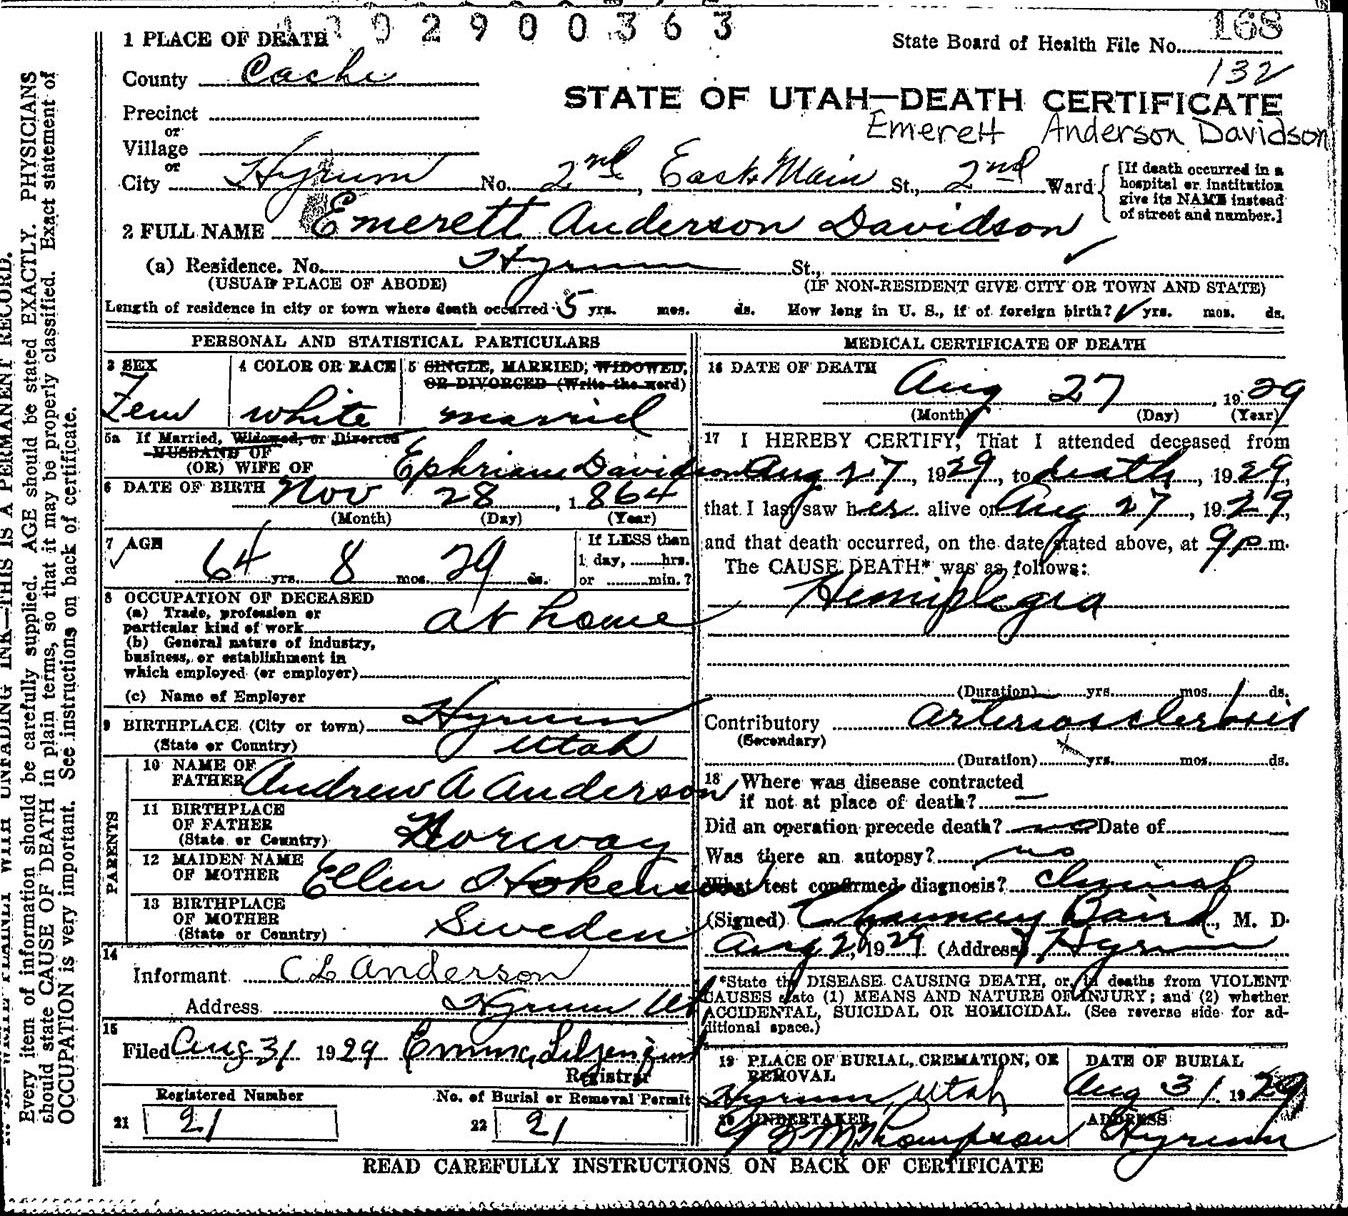 2900363
168
1 PLACE OF DEATH
State Board of Health File No.
132
County Cache
STATE OF UTAH—DEATH CERTIFICATE
Precinct
Emerett Anderson Davidson
or
Village
or
City Hyrum No. 2nd East Main St., 2nd Ward
[If death occurred in a
hospital or institution
give its NAME instead
of street and number.]
2 FULL NAME Emerett Anderson Davidson
(a) Residence. No. Hyrum St.,
(USUAL PLACE OF ABODE) (IF NON-RESIDENT GIVE CITY OR TOWN AND STATE)
Length of residence in city or town where death occurred 5 yrs. mos. ds. How long in U. S., if of foreign birth? yrs. mos. ds.
PERSONAL AND STATISTICAL PARTICULARS
3 SEX Fem
4 COLOR OR RACE white
5 SINGLE, MARRIED, WIDOWED,
OR DIVORCED (Write the word)
married
5a If Married, Widowed, or Divorced
HUSBAND OF
(OR) WIFE OF Ephriam Davidson
6 DATE OF BIRTH Nov 28, 1864
(Month) (Day) (Year)
7 AGE 64 yrs. 8 mos. 29 ds.
If LESS than
1 day, ......hrs.
or ......min.?
8 OCCUPATION OF DECEASED
(a) Trade, profession or
particular kind of work at home
(b) General nature of industry,
business, or establishment in
which employed (or employer)
(c) Name of Employer
9 BIRTHPLACE (City or town) Hyrum
(State or Country) Utah
PARENTS
10 NAME OF
FATHER Andrew A Anderson
11 BIRTHPLACE
OF FATHER
(State or Country) Norway
12 MAIDEN NAME
OF MOTHER Ellen Hokenson
13 BIRTHPLACE
OF MOTHER
(State or Country) Sweden
14
Informant C L Anderson
Address Hyrum Ut
15
Filed Aug 31 1929 Emma
Registrar
Registered Number
21 21
No. of Burial or Removal Permit
22 21
MEDICAL CERTIFICATE OF DEATH
16 DATE OF DEATH
Aug 27, 1929
(Month) (Day) (Year)
17 I HEREBY CERTIFY, That I attended deceased from
Aug 27, 1929, to death, 1929,
that I last saw her alive on Aug 27, 1929,
and that death occurred, on the date stated above, at 9 p m.
The CAUSE DEATH* was as follows:
Hemiplegia
(Duration) yrs. mos. ds.
Contributory arteriosclerosis
(Secondary)
(Duration) yrs. mos. ds.
18 Where was disease contracted
if not at place of death? —
Did an operation precede death? no Date of
Was there an autopsy? no
What test confirmed diagnosis? Clinical
(Signed) Chauncey Baird, M. D.
Aug 28, 1929. (Address) Hyrum
*State the DISEASE CAUSING DEATH, or in deaths from VIOLENT
CAUSES state (1) MEANS AND NATURE OF INJURY; and (2) whether
ACCIDENTAL, SUICIDAL OR HOMICIDAL. (See reverse side for ad-
ditional space.)
19 PLACE OF BURIAL, CREMATION, OR
REMOVAL
Hyrum, Utah
DATE OF BURIAL
Aug 31 1929
20 UNDERTAKER
Thompson
ADDRESS
Hyrum
READ CAREFULLY INSTRUCTIONS ON BACK OF CERTIFICATE
Every item of information should be carefully supplied. AGE should be stated EXACTLY. PHYSICIANS
should state CAUSE OF DEATH in plain terms, so that it may be properly classified. Exact statement of
OCCUPATION is very important. See instructions on back of certificate.